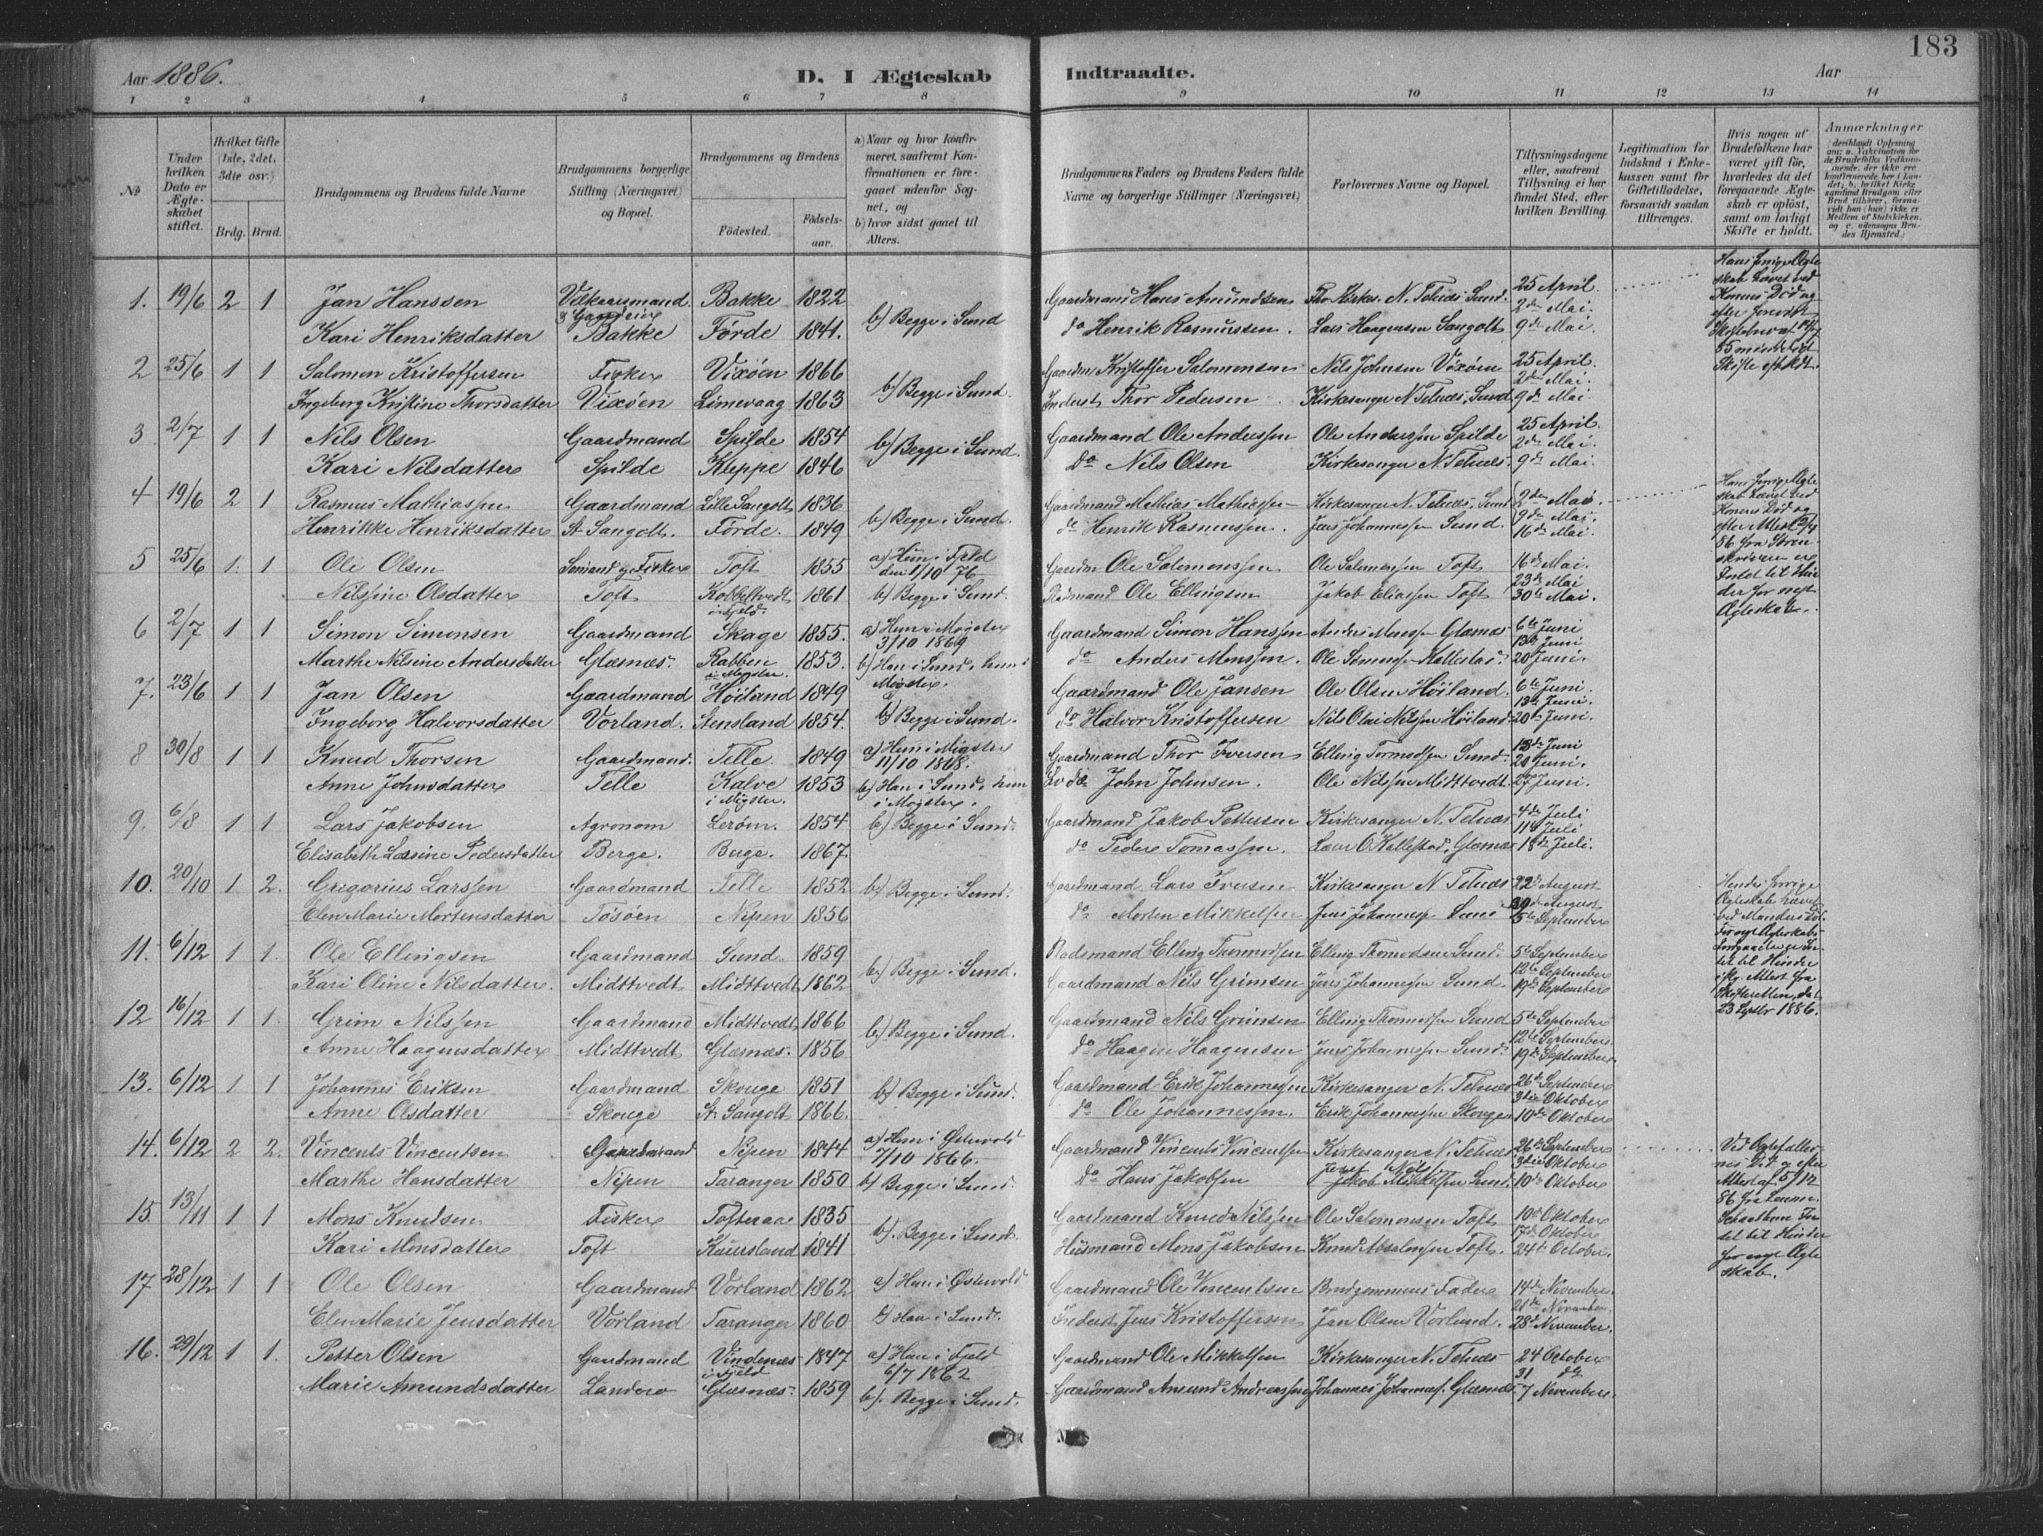 183
Aar 1886.
D. I Ægteskab Indtraadte.
Aar
1 2 3 4 5 6 7 8 9 10 11 12 13 14
No
Under hvilken Dato er Ægteskabet stiftet.
Hvilket Gifte (1ste, 2det, 3die osv.)
Brdg. Brud.
Brudgommens og Brudens fulde Navne
Brudgommens borgerlige Stilling (Næringsvei) og Bopæl.
Brudgommens og Brudens
Födested.
Födselsaar.
a) Naar og hvor konfirmeret, saafremt Konfirmationen er foregaaet udenfor Sognet, og
b) hvor sidst gaaet til Alters.
Brudgommens Faders og Brudens Faders fulde Navne og borgerlige Stillinger (Næringsvei)
Forlovernes Navne og Bopæl.
Tillysningsdagene eller, saafremt Tillysning ei har fundet Sted, efter hvilken Bevilling.
Legitimation for Indskud i Enkekassen samt for Giftetilladelse, forsaavidt saadan tiltrænges.
Hvis nogen af Brudefolkene har været gift för, hvorledes da det foregaaende Ægteskab er oplöst, samt om lovligt Skifte er holdt.
Anmærkninger
1. 19/6 2 1 Jan Hanssen Bakke 1822 b) Begge i Sund Gaardmand Hans Amundsen Kirkes. N. Telnæs Sund. 25 April
Kari Henriksdatter Bakke Förde 1841. do Henrik Rasmussen. Lars Haagensen Sangolt 2den Mai 9de Mai
2 25/6 1 1 Salomon Kristoffersen Fisker Vixöen 1866 b) Begge i Sund. Gaardm. Kristoffer Salomonsen Nils Johnsen Vixöen 25 April
Ingeborg Kristine Thorsdatter Vixöen Limevaag 1863 Inderst Thor Pedersen Kirkesanger N. Telnæs, Sund 2den Mai 9de Mai.
3 2/7 1 1 Nils Olsen Gaardmand Spilde 1854 b) Begge i Sund. Gaardmand Ole Anderssen Ole Anderssen Spilde 25 April
Kari Nilsdatter Spilde Kleppe 1846 do Nils Olsen Kirkesanger N. Telnæs. 2den Mai. 9de Mai.
4 19/6 2 1 Rasmus Mathiassen Gaardmand Lille Sangolt 1836 b) Begge i Sund. Gaardmand Mathias Mathiassen Kirkesanger N. Telnæs, Sund 2den Mai.
Henrikke Henriksdatter St. Sangolt. Förde. 1849 do Henrik Rasmussen. Jens Johannessen Sund. 9de Mai. 16de Mai.
5 25/6 1. 1 Ole Olsen Sömand og Fisker Toft 1855 a) Hun i Fjeld den 1/10 76 Gaardm. Ole Salomonssen Ole Salomonssen Toft 16de Mai
Nilsine Olsdatter Toft Kobbeltvedt i Fjeld 1861 b) Begge i Sund. Ole Ellingsen Jakob Eliassen Toft 23de Mai 30te Mai
6 2/7 1 1 Simon Simonsen Gaardmand Skage 1855. a) Hun i Mögster 3/10 1869 Gaardmand Simon Hanssen Anders Monssen Glæsnæs 6te Juni
Marthe Nilsine Andersdatter Glæsnæs. Rabben i Mögster 1853. b) Han i Sund, hun i Mögster. do Anders Monssen. Ole Simonssen Kallestad. 13de Juni 20 Juni.
7. 23/6 1 1 Jan Olsen Gaardmand Höiland 1849 Gaardmand Ole Jansen Ole Olsen Höiland. 6te Juni
Ingeborg Halvorsdatter Vorland. Stensland 1854. b) Begge i Sund. do Halvor Kristoffersen Nils Olai Nilssen Höiland 13de Juni 20de Juni.
8 30/8 1 1 Knud Thorsen Gaardmand. Telle 1849 a) Hun i Mögster 11/10 1868. Gaardmand Thor Iversen Elling Tormodssen Sund. 13de Juni
Anne Johnsdatter Telle Kalve i Mögster. 1853 b) Han i Sund, hun i Mögster. John Johnsen. Ole Nilssen Midttvedt. 20 Juni. 27 Juni.
9. 6/8 1 1 Lars Jakobsen Agronom Leröen. 1854 b) Begge i Sund. Gaardmand Jakob Pettersen Kirkesanger N. Telnæs 4de Juli
Elisabeth Lassine Pedersdatter Berge. Berge. 1867. do Peder Tomassen. Lars O. Kallestad, Glæsnæs 11te Juli 18de Juli.
10. 20/10 1 2. Gregorius Larssen Gaardmand Telle 1852 b) Begge i Sund. Gaardmand. Lars Iversen Kirkesanger N. Telnæs 22de August
Elen Marie Mortensdatter Tösöen Nipen 1856 do Morten Mikkelsen Jens Johannessen Sund August 5te September
11. 6/12 1 1. Ole Ellingsen Gaardmand Sund. 1859 b) Begge i Sund. Elling Thormodssen Elling Thormodsen Sund. 5te September
Kari Oline Nilsdatter. Midttvedt Midttvedt 1862 Gaardmand Nils Grimsen Jens Johannessen Sund. 12te September 19de September
12 16/12 1 1. Grim Nilssen Gaardmand Midttvedt 1866 b) Begge i Sund. Gaardmand Nils Grimsen Elling Thormodssen Sund 5te September
Anne Haagensdatter Midttvedt Glæsnæs. 1856 do Haagen Haagensen Jens Johannessen Sund. 12te September. 19de September.
13. 6/12 1 1 Johannes Eriksen Gaardmand Skouge 1851 b) Begge i Sund. Gaardmand Erik Johannessen Kirkesanger N. Telnæs 26de September
Anne Olsdatter Skouge St. Sangolt 1866. do Ole Johannessen. Erik Johannessen Skouge 3die Oktober 10de Oktober
14. 6/12 2 2. Vincents Vincentsen Gaardmand Nipen 1844 a) Han i Östervold 7/10 1866. Gaardmand Vincents Vincentsen Kirkesanger N. Telnæs 26de September
Marthe Hansdatter Nipen Taranger 1850 b) Begge i Sund. do Hans Jakobsen Jakob Mikkelsen Sund. 3die Oktober 10de Oktober
15. 13/11 1 1 Mons Knudsen Fisker Tofteraa 1835 b). Begge i Sund. Gaardmand Knud Nilssen Ole Salomonsen Toft 10de Oktober
Kari Monsdatter Toft Kaursland 1841 Husmand Mons Jakobsen Knud Absalonsen Toft. 17de Oktober 24de October.
17 28/12 1 1 Ole Olsen Gaardmand Vorland 1862 a) Han i Östervold Gaardmand Ole Vincentsen Brudgommens Fader 14de November.
Elen Marie Jensdatter Vorland Taranger 1860 b) Han i Sund. Inderst Jens Kristoffersen Jan Olsen Vorland. 21de November 28d November.
16. 29/12 1 1. Petter Olsen Gaardmand Vindenæs i Fjeld 1847 a) Han i Fjeld 6/7 1862 Gaardmand Ole Mikkelsen Kirkesanger N. Telnæs 24 October
Marie Amundsdatter Landero Glæsnæs. 1859 b). Begge i Sund. Gaardmand Amund Andreassen Johannes Johannes. Glæsnæs 31 do 7 November.
Hans forrige Ægteskab hævet ved Konens Död og
Hans forrige Ægteskab hævet ved Konens Död og efter Attest
86 fra
Intet til Hinder for nyt Ægteskab.
Hendes forrige Ægteskab hævet ved Mandens Död.
Intet til Hinder
Attest fra Skifteretten, dat. 23 Septbr 1886.
Ved Ægtefællernes Död og efter Attest af 5/12 86 fra
Intet til Hinder for nyt Ægteskab.